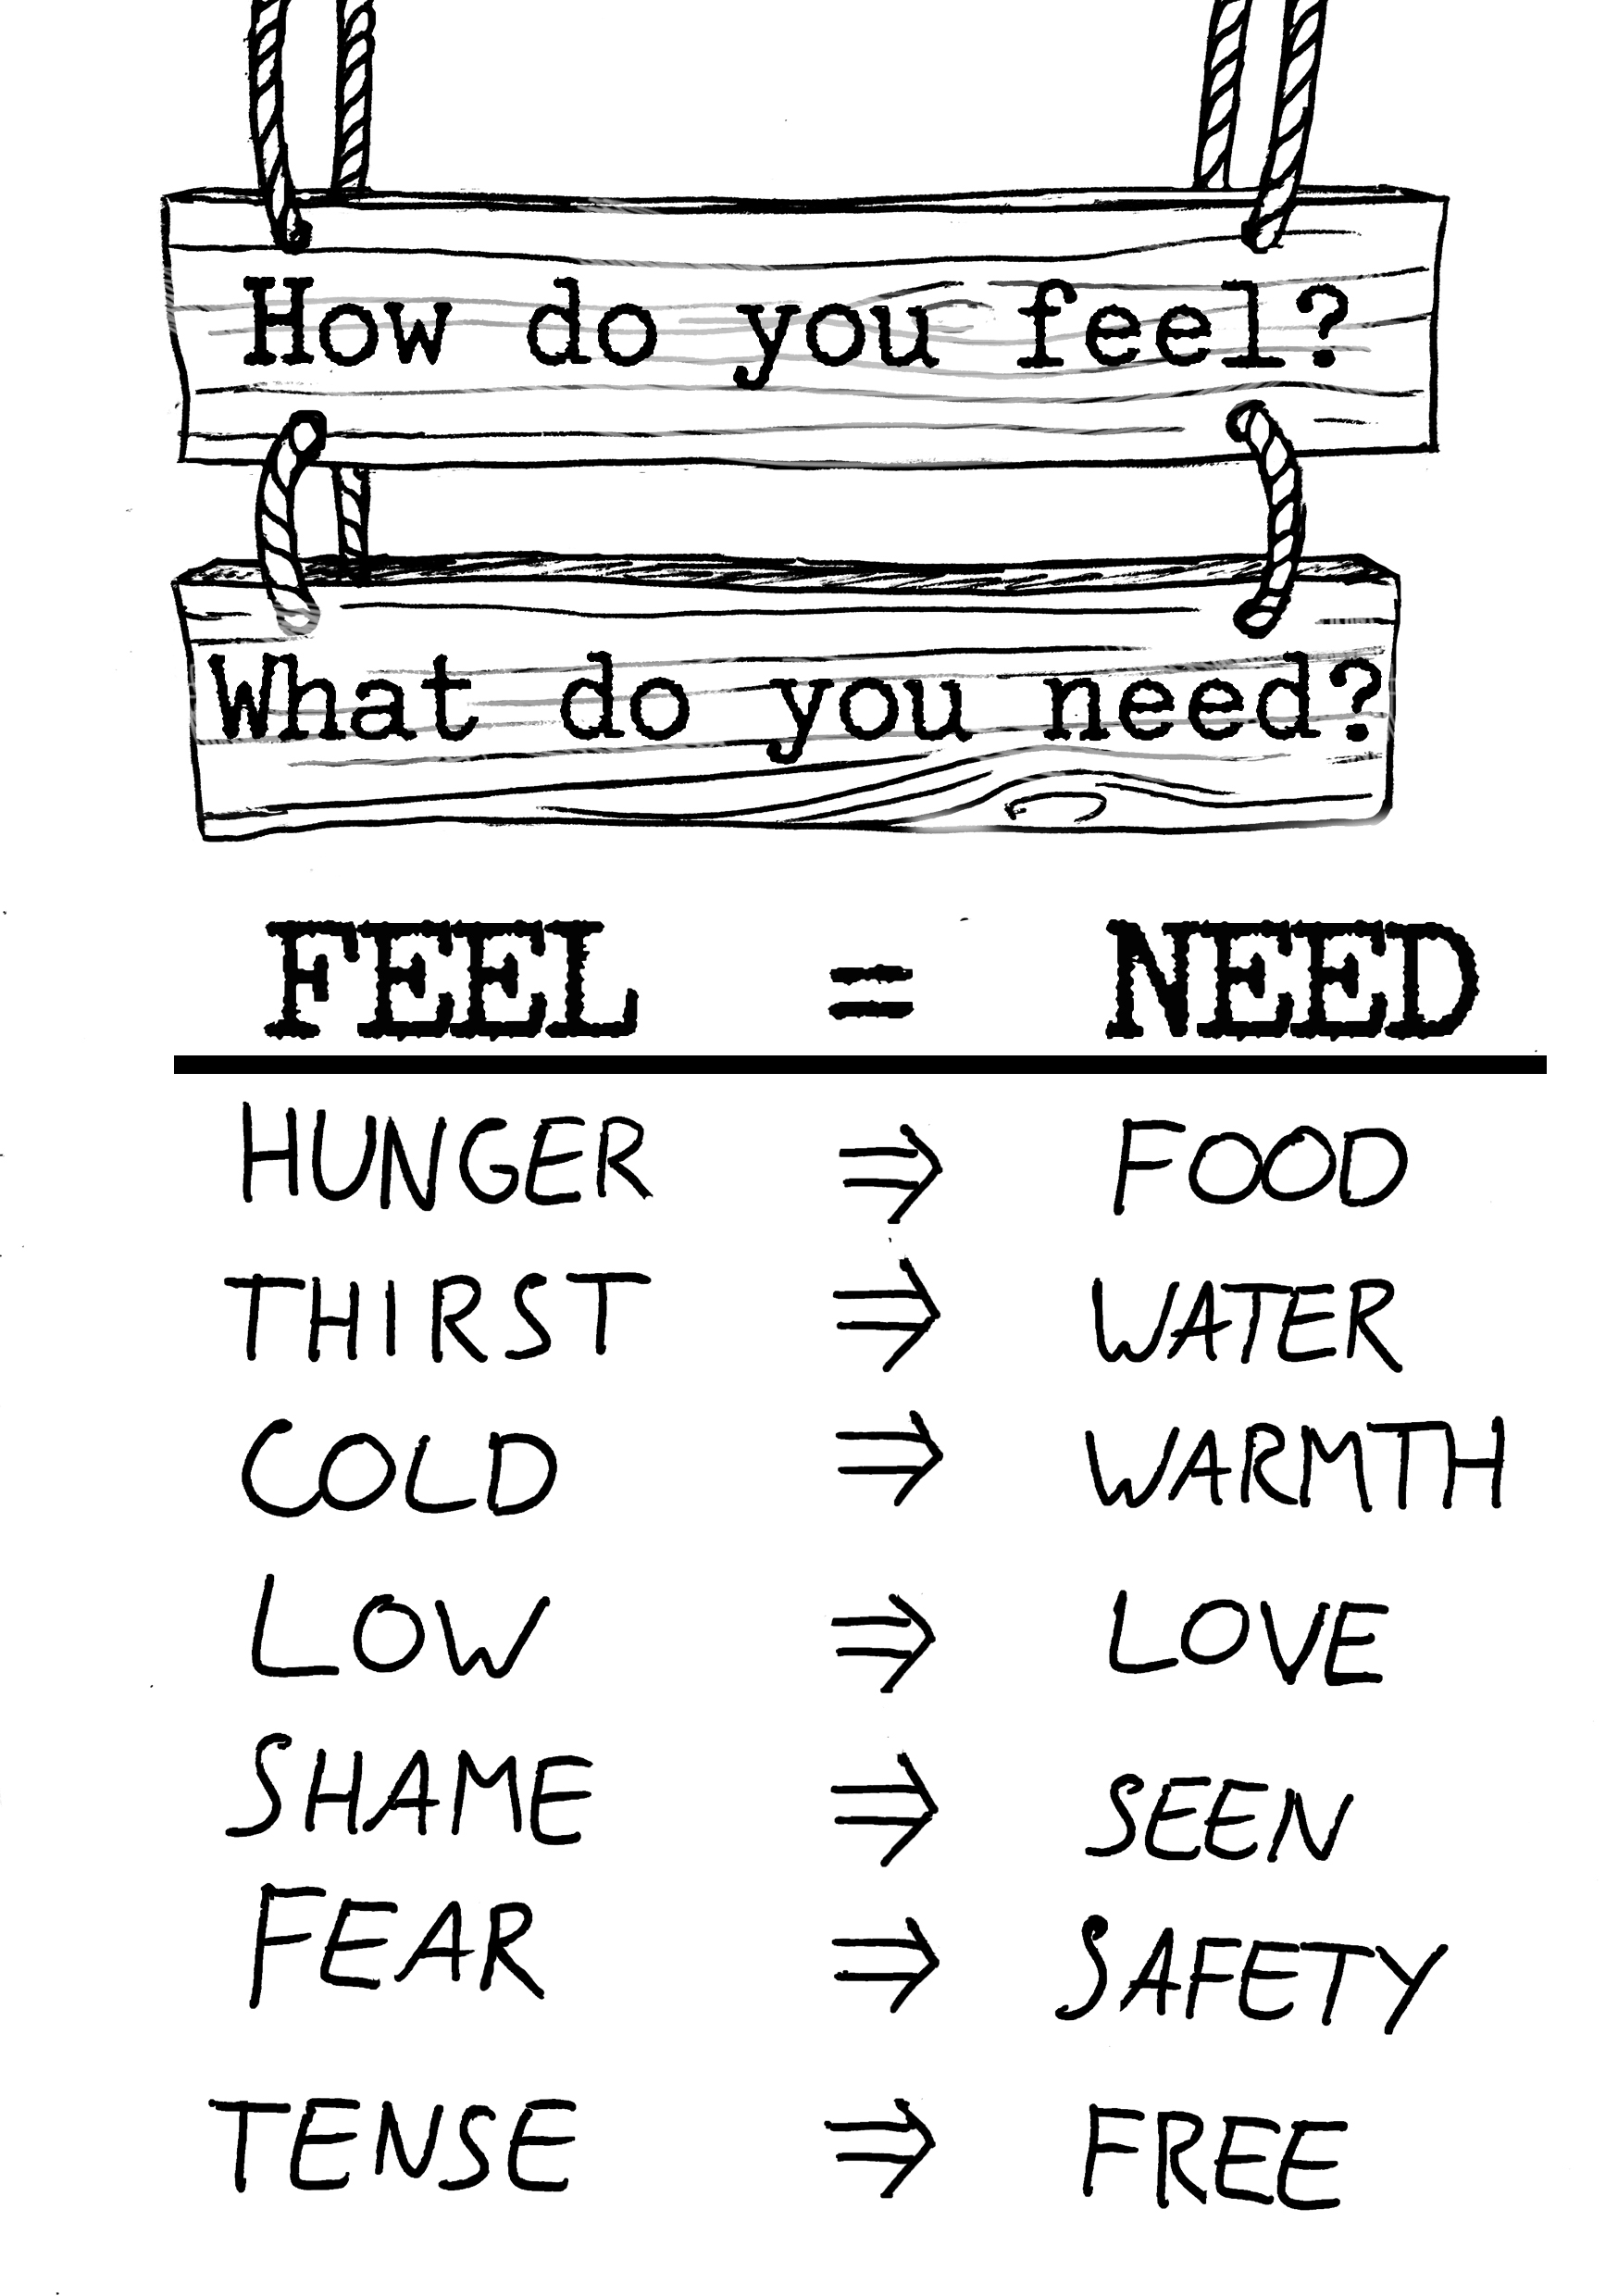 How do you feel?
What do you need?
FEEL = NEED
HUNGER ⇒ FOOD
THIRST ⇒ WATER
COLD ⇒ WARMTH
LOW ⇒ LOVE
SHAME ⇒ SEEN
FEAR ⇒ SAFETY
TENSE ⇒ FREE